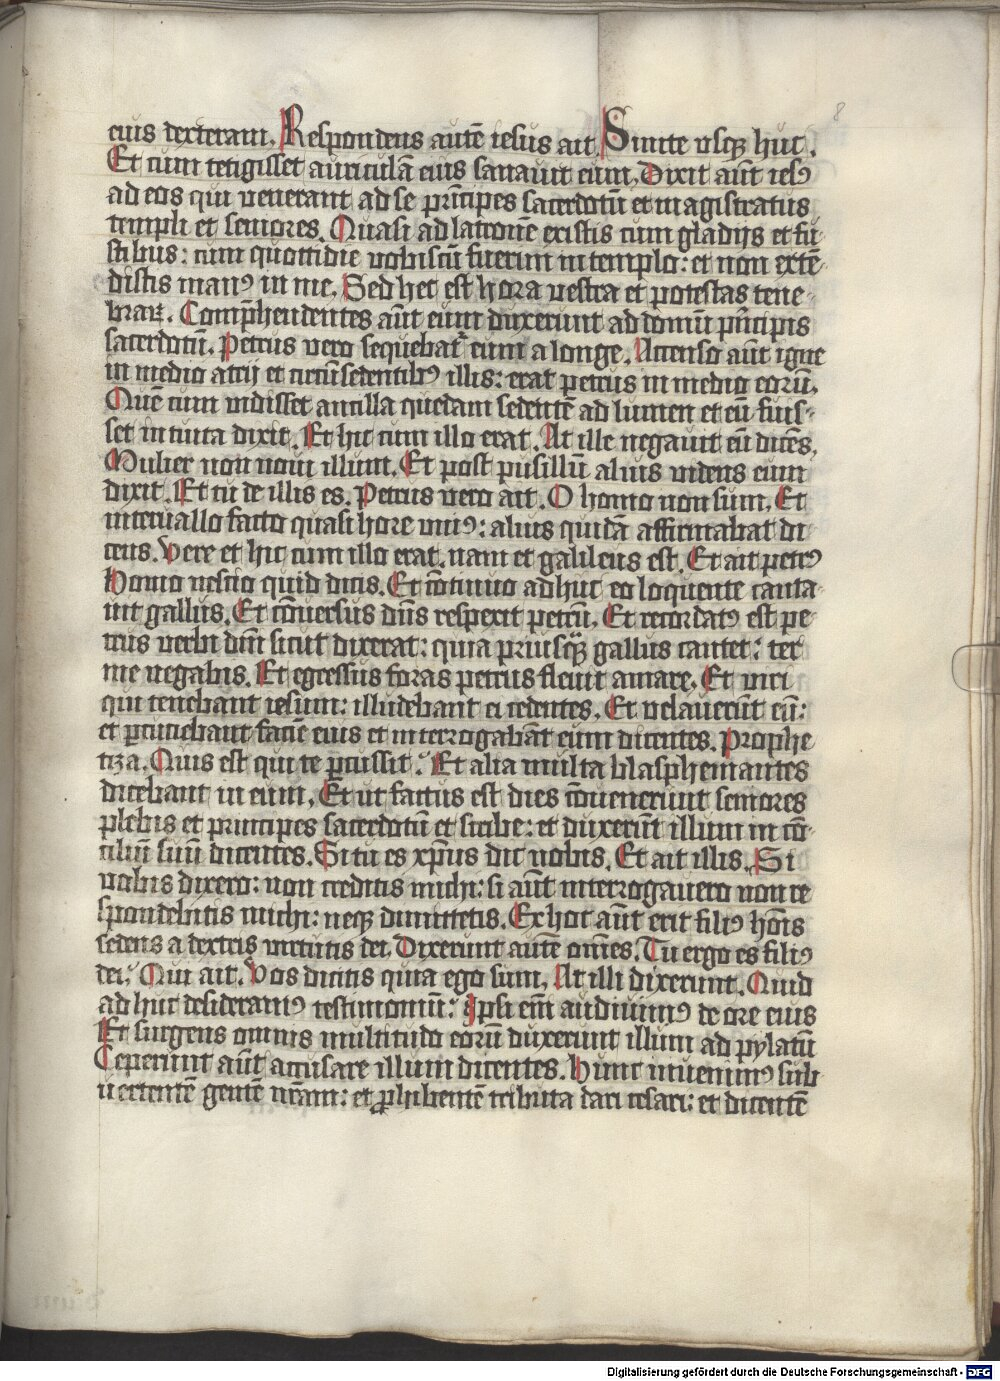 8
eius dexteram. Respondens autē iesus ait. Sinite vsqꝫ huc.
Et cum tetigisset auriculā eius sanauit eum. Dixit aūt iesꝰ
ad eos qui uenerant ad se prīcipes sacerdotū et magistratus
templi et seniores. Quasi ad latronē existis cum gladijs et fu-
stibus: cum quottidie uobiscū fuerim in templo: et non extē-
distis manꝰ in me. Sed hec est hora uestra et potestas tene-
braꝝ. Comp̄hendentes aūt eum duxerunt ad domū prīcipis
sacerdotū. Petrus vero sequebat᷑ eum a longe. Accenso aūt igne
in medio atrij et circūsedentibꝰ illis: erat petrus in medio eorū.
Quē cum uidisset ancilla quedam sedentē ad lumen et eū fuis-
set intuita dixit. Et hic cum illo erat. At ille negauit eū dicēs.
Mulier non noui illum. Et post pusillū alius uidens eum
dixit. Et tu de illis es. Petrus vero ait. O homo non sum. Et
interuallo facto quasi hore uniꝰ: alius quidā affirmabat di-
cens. Vere et hic cum illo erat. nam et galileus est. Et ait petrꝰ
Homo nescio quid dicis. Et cōtinuo adhuc eo loquente canta-
uit gallus. Et cōuersus dn̄s respexit petrū. Et recordatꝰ est pe-
trus verbi dn̄i sicut dixerat: quia priusqꝫ gallus cantet: ter
me negabis. Et egressus foras petrus fleuit amare. Et uiri
qui tenebant iesum: illudebant ei cedentes. Et uelauerūt eū:
et ꝑcuciebant faciē eius et interrogabāt eum dicentes. Prophe
tiza. Quis est qui te ꝑcussit? Et alia multa blasphemantes
dicebant in eum. Et ut factus est dies cōuenerūnt seniores
plebis et principes sacerdotū et scribe: et duxerūt illum in cō-
ciliū suū dicentes. Si tu es xp̄us dic nobis. Et ait illis. Si
uobis dixero: non creditis michi: si aūt interrogauero non re
spondebitis michi: neqꝫ dimittetis. Ex hoc aūt erit filiꝰ hoīs
sedens a dextris uirtutis dei. Dixerunt autē om̄es. Tu ergo es filiꝰ
dei? Qui ait. Vos dicitis quia ego sum. At illi dixerunt. Quid
ad huc desideramꝰ testimoniū? Ipsi em̄ audiuimꝰ de ore eius
Et surgens omnis multitudo eorū duxerunt illum ad pylatū
Ceperunt aūt accusare illum dicentes. Hunc inuenimꝰ sub
uertentē gentē nr̄am: et ꝓhibentē tributa dari cesari: et dicentē
Digitalisierung gefördert durch die Deutsche Forschungsgemeinschaft - DFG